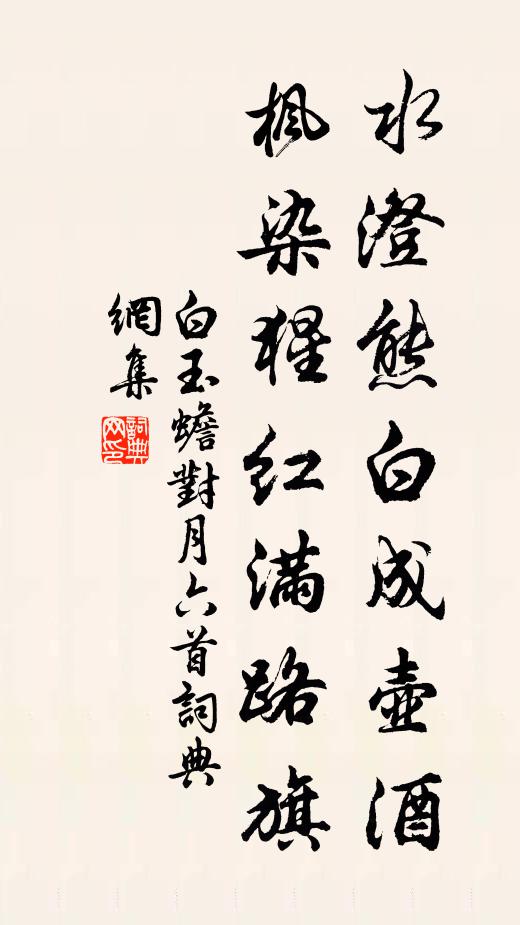 水澄熊白成壺酒
枫染猩红满路旗
白玉蟾對月六首詞典
網集
詞典
网印